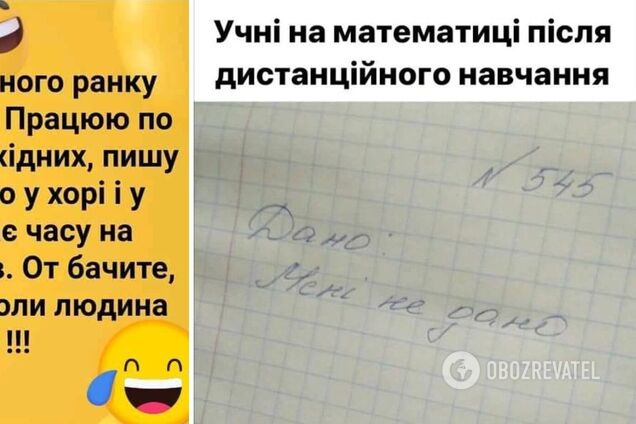 ного ранку
Працюю по
хідних, пишу
о у хорі і у
є часу на
в. От бачите,
оли людина
!!!
Учні на математиці після
дистанційного навчання
№ 545
Дано:
Мені не дано
OBOZREVATEL